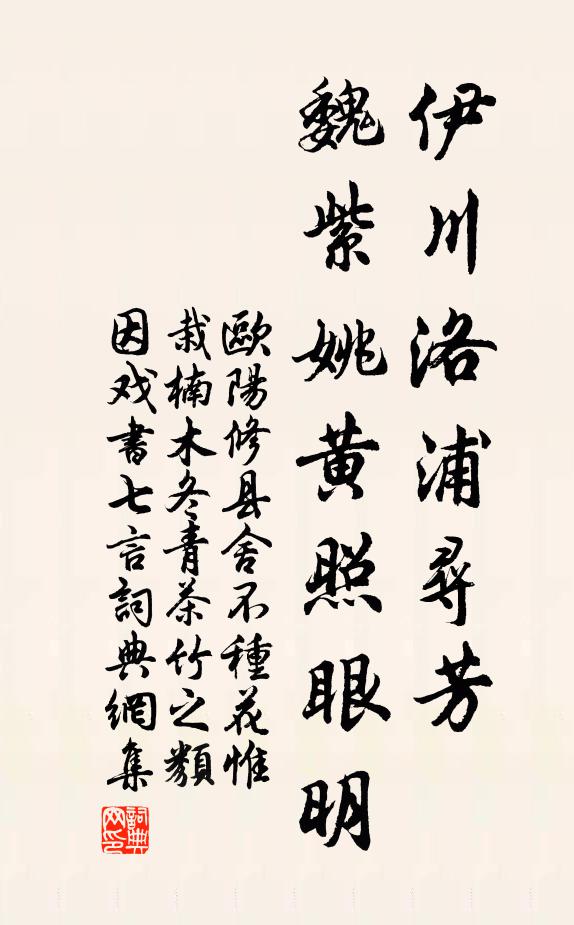 伊川洛浦尋芳
魏紫姚黄照眼明
歐陽修县舍不種花惟
栽楠木冬青茶竹之類
因戏書七言詞典網集
詞典
网印